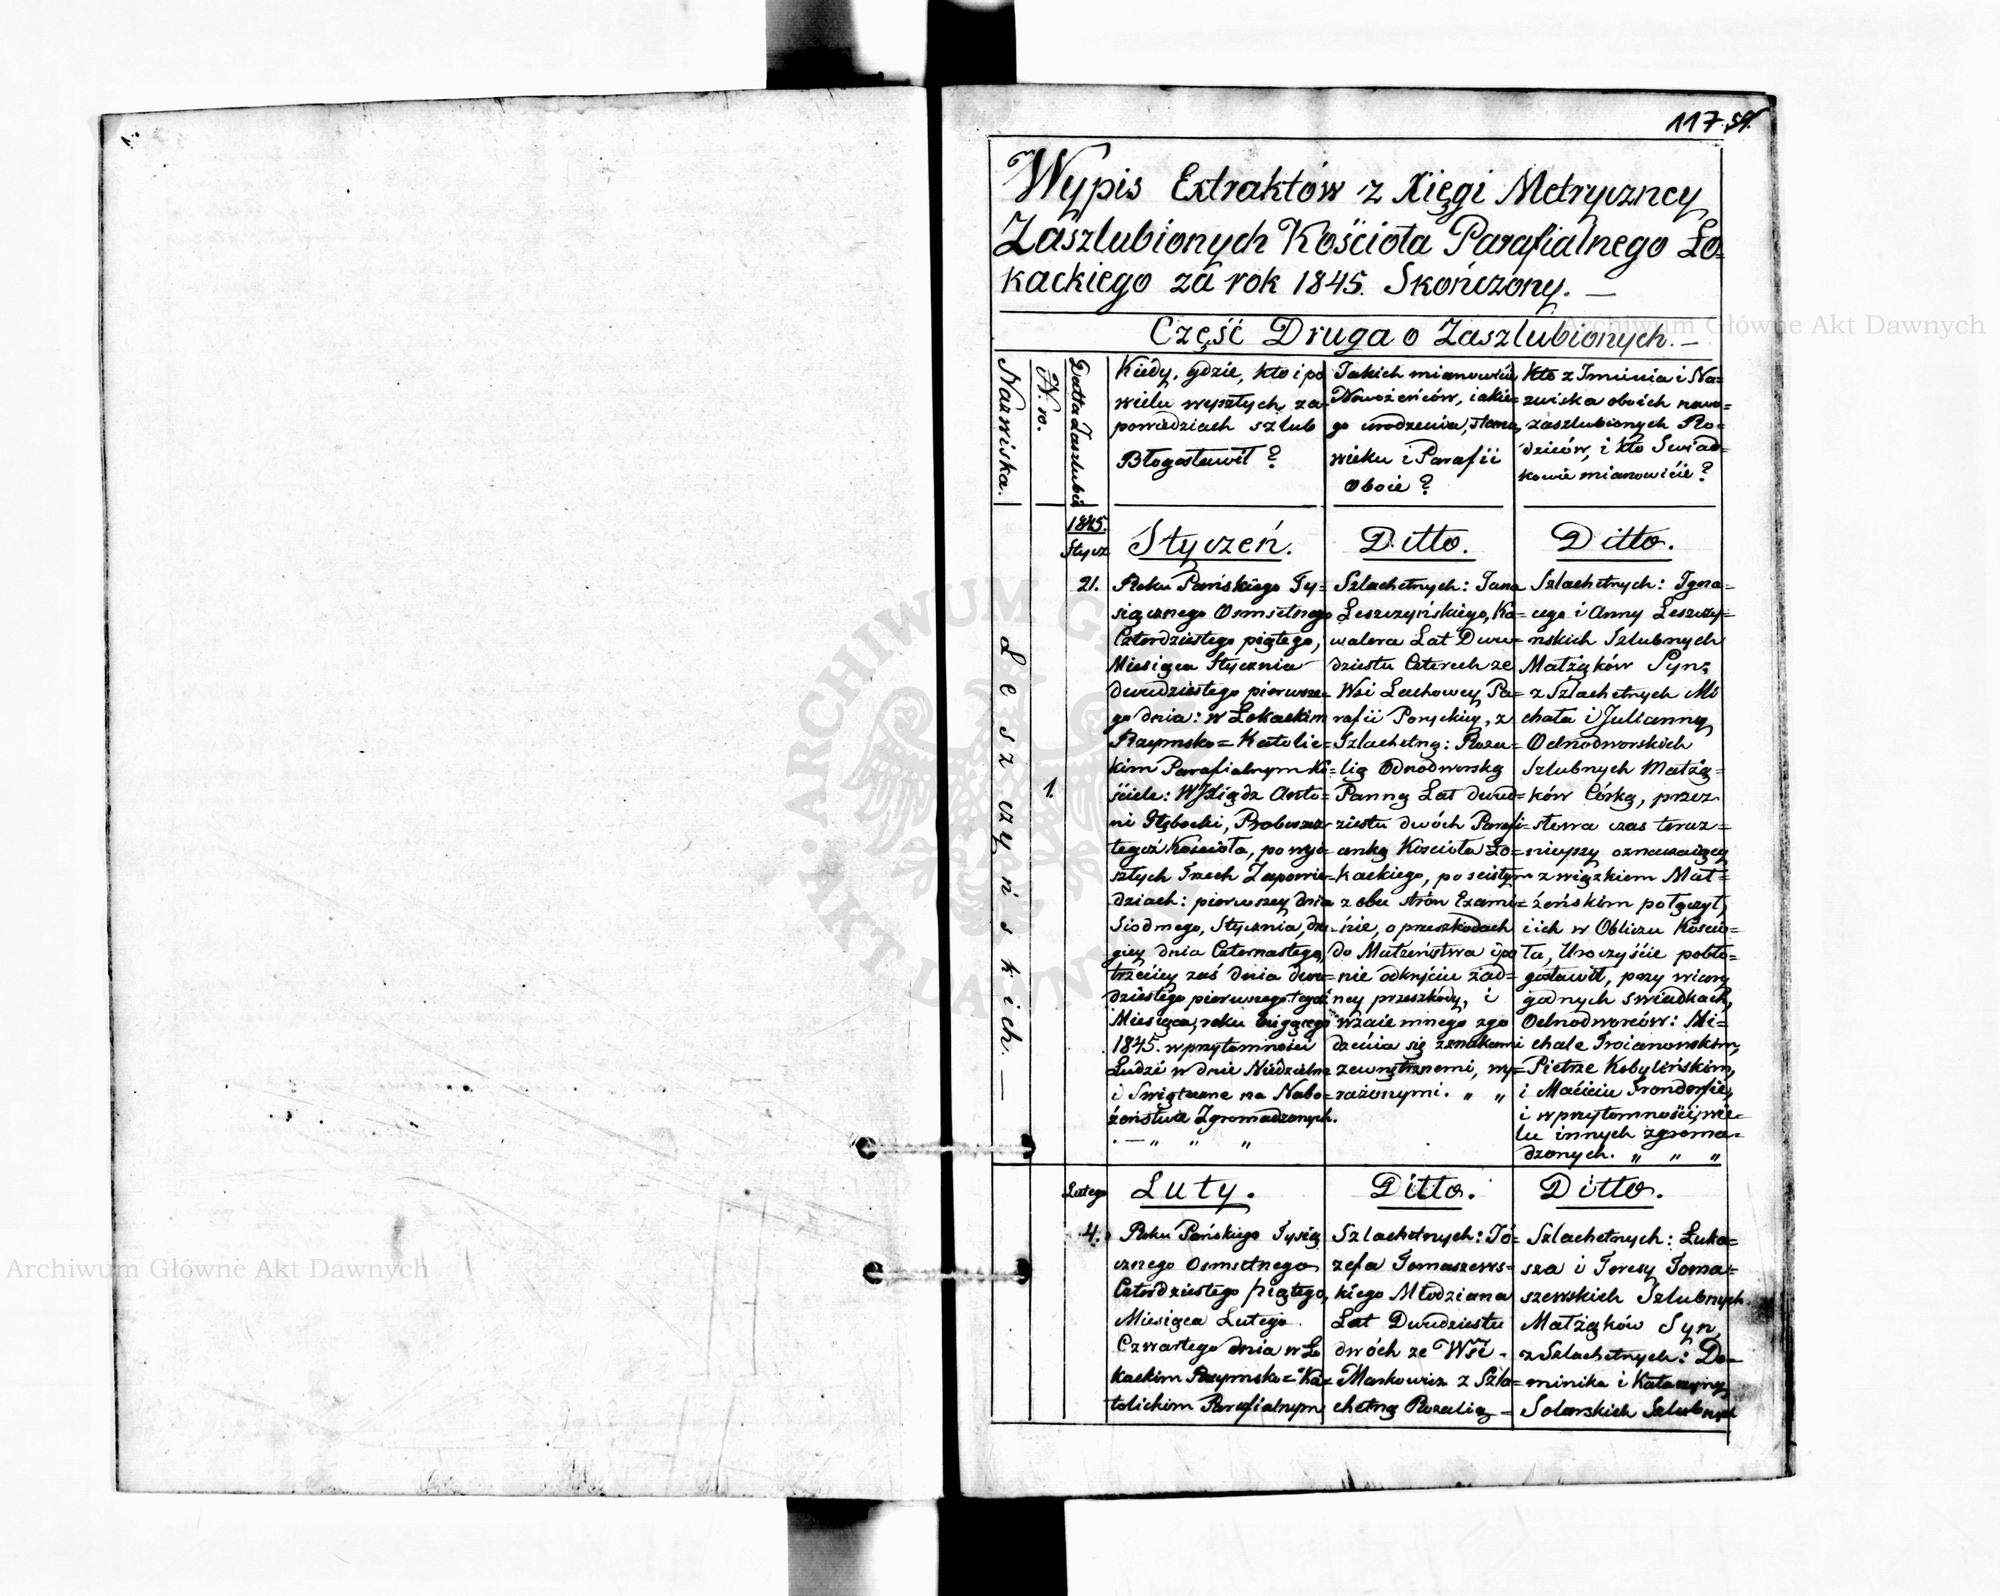 117 59.
Wypis Extraktów z Xięgi Metryczney
Zaszlubionych Kościoła Parafialnego Ło=
kackiego za rok 1845. Skończony. —
Część Druga o Zaszlubionych. —
Nazwiska.
N.ro.
Datta Zaszlubin
Kiedy, gdzie, kto i po
wielu wyszłych za-
powiedziach szlub
Błogosławił?
Jakich mianowicie
Nowożeńców, iakie=
go urodzenia, stanu,
wieku i Parafii
Oboie?
Kto z Imienia i Na=
zwiska obóich nowo=
zaszlubionych Ro=
dziców, i kto Swiad=
kowie mianowićie?
1845.
Stycz
21.
Leszczyńskich. —
1.
Styczeń.
Roku Pańskiego Ty=
siącznego Osmsetnego
Czterdziestego piątego,
Miesiąca Stycznia
dwudziestego pierwsze=
go dnia: w Łokackim
Rzymsko=Katolic=
kim Parafialnym Ko=
ściele: WJXiądz Anto=
ni Głębocki, Proboszcz
tegoż Kościoła, po wyi=
szłych Trzech Zapowie=
dziach: pierwszey dnia
Siodmego, Stycznia, dru=
giey dnia Czternastego,
trzeciey zaś dnia dwu=
dziestego pierwszego tegoż
Miesiąca, roku bieżącego
1845. w przytomności
Ludzi w dnie Niedzielne
i Swiąteczne na Nabo=
żeństwa Zgromadzonych.
— „ „ „
Ditto.
Szlachetnych: Jana
Leszczyńskiego, Ka=
walera Lat Dwu=
dziestu Czterech ze
Wsi Lachowey Pa=
rafii Poryckiey, z
Szlachetną: Roza=
lią Odnodworską
Panną Lat dwud=
ziestu dwóch Parafi=
anką Kościoła Ło=
kackiego, po scisłym
z obu stron Exami=
nie, o przeszkodach
do Małżeństwa i po
nie odkryciu żad=
ney przeszkody, i
wzaiemnego zgo
dzenia się znakami
zewnętrznemi, wy=
rażonymi. „ „
Ditto.
Szlachetnych: Igna=
cego i Anny Leszczy=
ńskich Szlubnych
Małżąków Syn;
z Szlachetnych Mi
chała i Julianny
Odnodworskich
Szlubnych Małżą=
ków Córką, przez
słowa czas teraz=
nieyszy oznaczaiący
związkiem Mał=
żeńskim połączył,
i ich w Obliczu Kościo=
ła, Uroczyście pobło=
gosławił, przy wiary
godnych swiadkach,
Odnodworców: Mi=
chale Troianowskim,
Pietrze Kobylińskim,
i Maćieiu Grondorfie,
i w przytomności, wie=
lu innych zgroma=
dzonych. „ „ „
Lutego
4.
Luty.
Roku Pańskiego Tysią
cznego Osmsetnego
Czterdziestego piątego,
Miesiąca Lutego
Czwartego dnia w Ło
kackim Rzymsko=Ka=
tolickim Parafialnym
Ditto.
Szlachetnych: Jó=
zefa Tomaszews=
kiego Młodziana
Lat Dwudziestu
dwóch ze Wsi -
Markowicz z Szla=
chetną Rozalią —
Ditto.
Szlachetnych: Łuka=
sza i Teresy Toma=
szewskich Szlubnych
Małżąków Syn,
z Szlachetnych: Do=
minika i Katarzyny
Solarskich Szlubnych
Archiwum Główne Akt Dawnych
Archiwum Główne Akt Dawnych